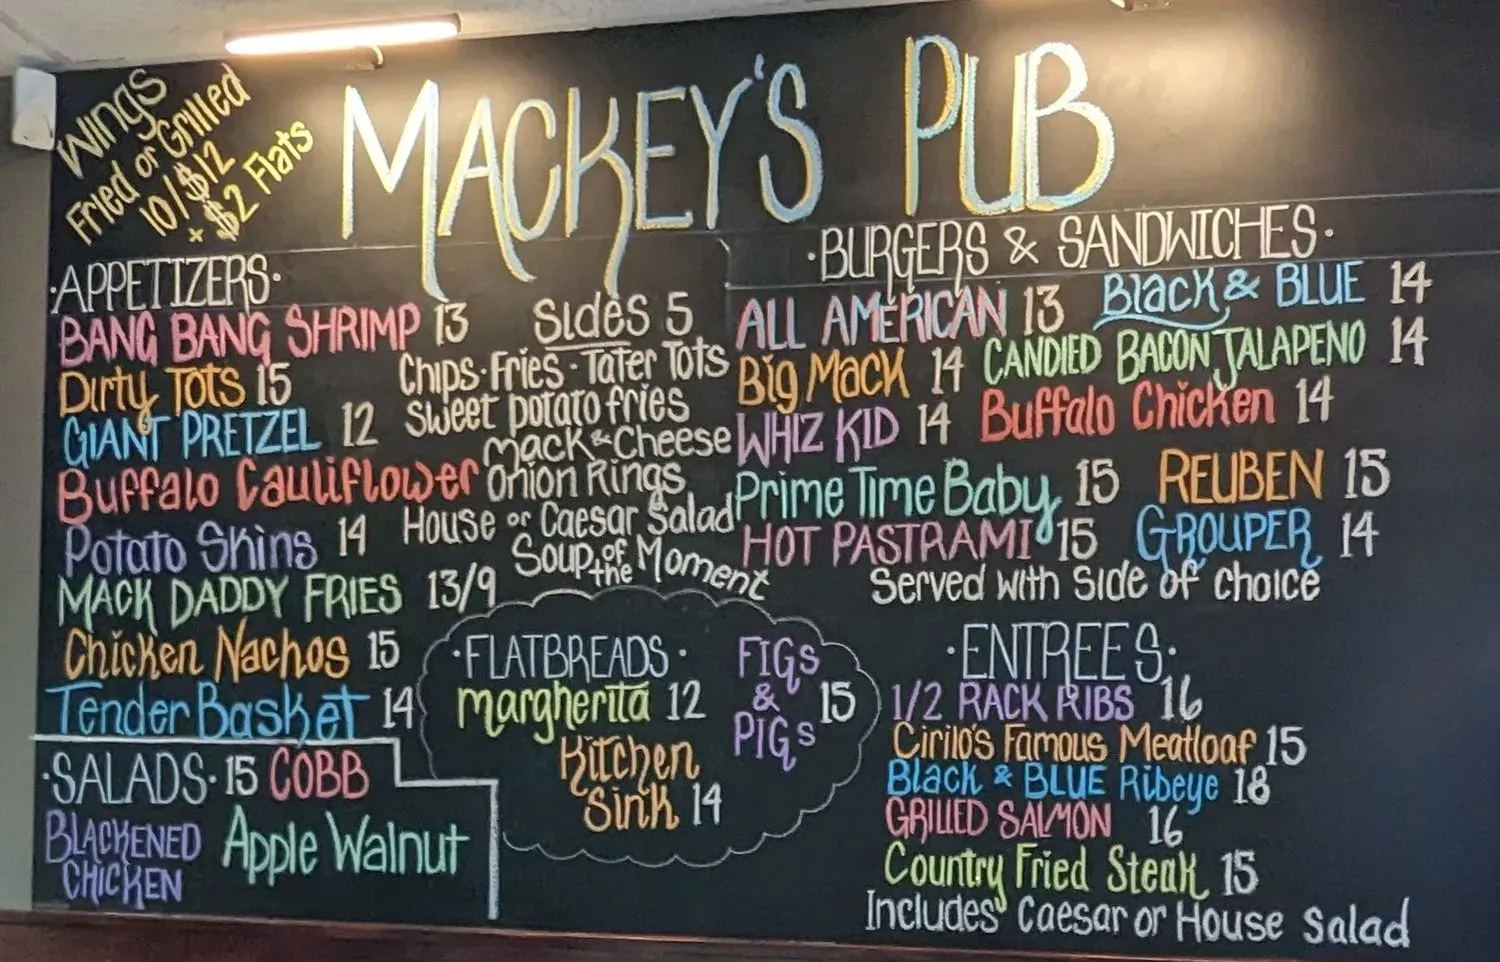 Wings
Fried or Grilled
10/$12
x $2 Flats
MACKEY'S PUB
·APPETIZERS·
BANG BANG SHRIMP 13
Dirty Tots 15
GIANT PRETZEL 12
Buffalo Cauliflower
Potato Skins 14
MACK DADDY FRIES 13/9
Chicken Nachos 15
Tender Basket 14
Sides 5
Chips·Fries·Tater Tots
Sweet potato fries
Mack & Cheese
Onion Rings
House or Caesar Salad
Soup of the Moment
·SALADS· 15 COBB
BLACKENED CHICKEN
Apple Walnut
·FLATBREADS·
margherita 12
Kitchen
Sink 14
FIGS
&
PIGS
15
·BURGERS & SANDWICHES·
ALL AMERICAN 13 Black & BLUE 14
Big Mack 14 CANDIED BACON JALAPENO 14
WHIZ KID 14 Buffalo Chicken 14
Prime Time Baby 15 REUBEN 15
HOT PASTRAMI 15 GROUPER 14
Served with Side of choice
·ENTREES·
1/2 RACK RIBS 16
Cirilo's Famous Meatloaf 15
Black & BLUE Ribeye 18
GRILLED SALMON 16
Country Fried Steak 15
Includes Caesar or House Salad